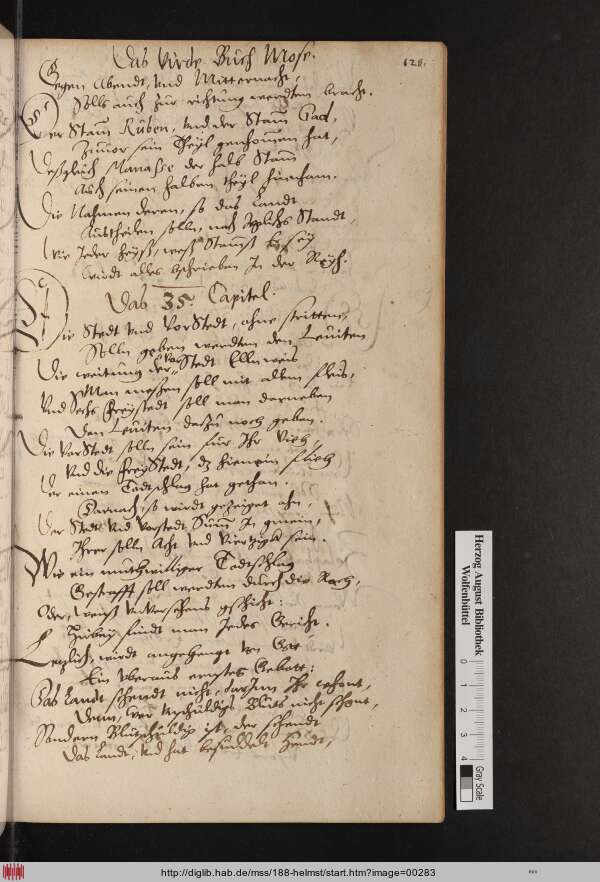 Das Virde Buch Mose.
128.
Gegen Abendt, vnd Mitternacht,
Solls auch zur richtung werden bracht.
Der Stam Ruben, vnd der Stam Gad,
Zuuor sein Theyl genhommen hat,
Deßgleich Manasse der halb Stam
Auch seinen halben theyl
Die Nahmen deren, so das Landt
Außtheilen solln, nach Standt,
Wie Jeder heyß, weß Stamß Er sey
Wirdt alles bschrieben In der Reyh.
Das 35. Capitel.
Die Stedt vnd VorStedt, ohne stritten,
Solln geben werden den Leuiten
Die weitung der VorStedt Ellnweis
Man messen soll mit allem fleis,
Vnd Sechs Freystedt soll man darneben
Den Leuiten dartzu noch geben.
Die VorStedt solln sein für Ihr Vieh,
Vnd die FreyStedt, dz hienein flieh
Der einen Todtschlag hat gethan.
Darnach, so wirdt getzeiget ahn,
Der Stedt vnd Vorstedt Sum In gmein,
Ihrer solln Acht vnd Viertzigk sein.
Wie ein muthwilliger Todtschlag
Gestrafft soll werden durch die Rach,
Oder, wenß vnversehens gschicht:
Hiebey findt man Jedes Gericht.
Letzlich, wirdt angehengt von Got
Ein vberaus ernstes Gebott:
Das Landt schendt nicht, darInn Ihr wohont,
Denn, wer vnschuldigs Bluts nicht schont,
Sondern Blutschuldig ist, der schendt
Das Landt, vnd hat besuddelt Hendt,
Herzog August Bibliothek
Wolfenbüttel
0 1 2 3 4
Gray Scale
http://diglib.hab.de/mss/188-helmst/start.htm?image=00283